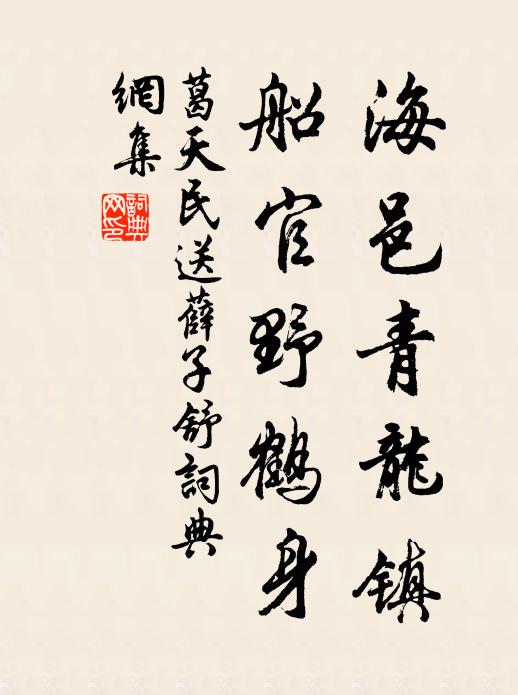 海邑青龍镇
船官野鶴身
葛天民送薛子舒詞典
網集
詞典
网印